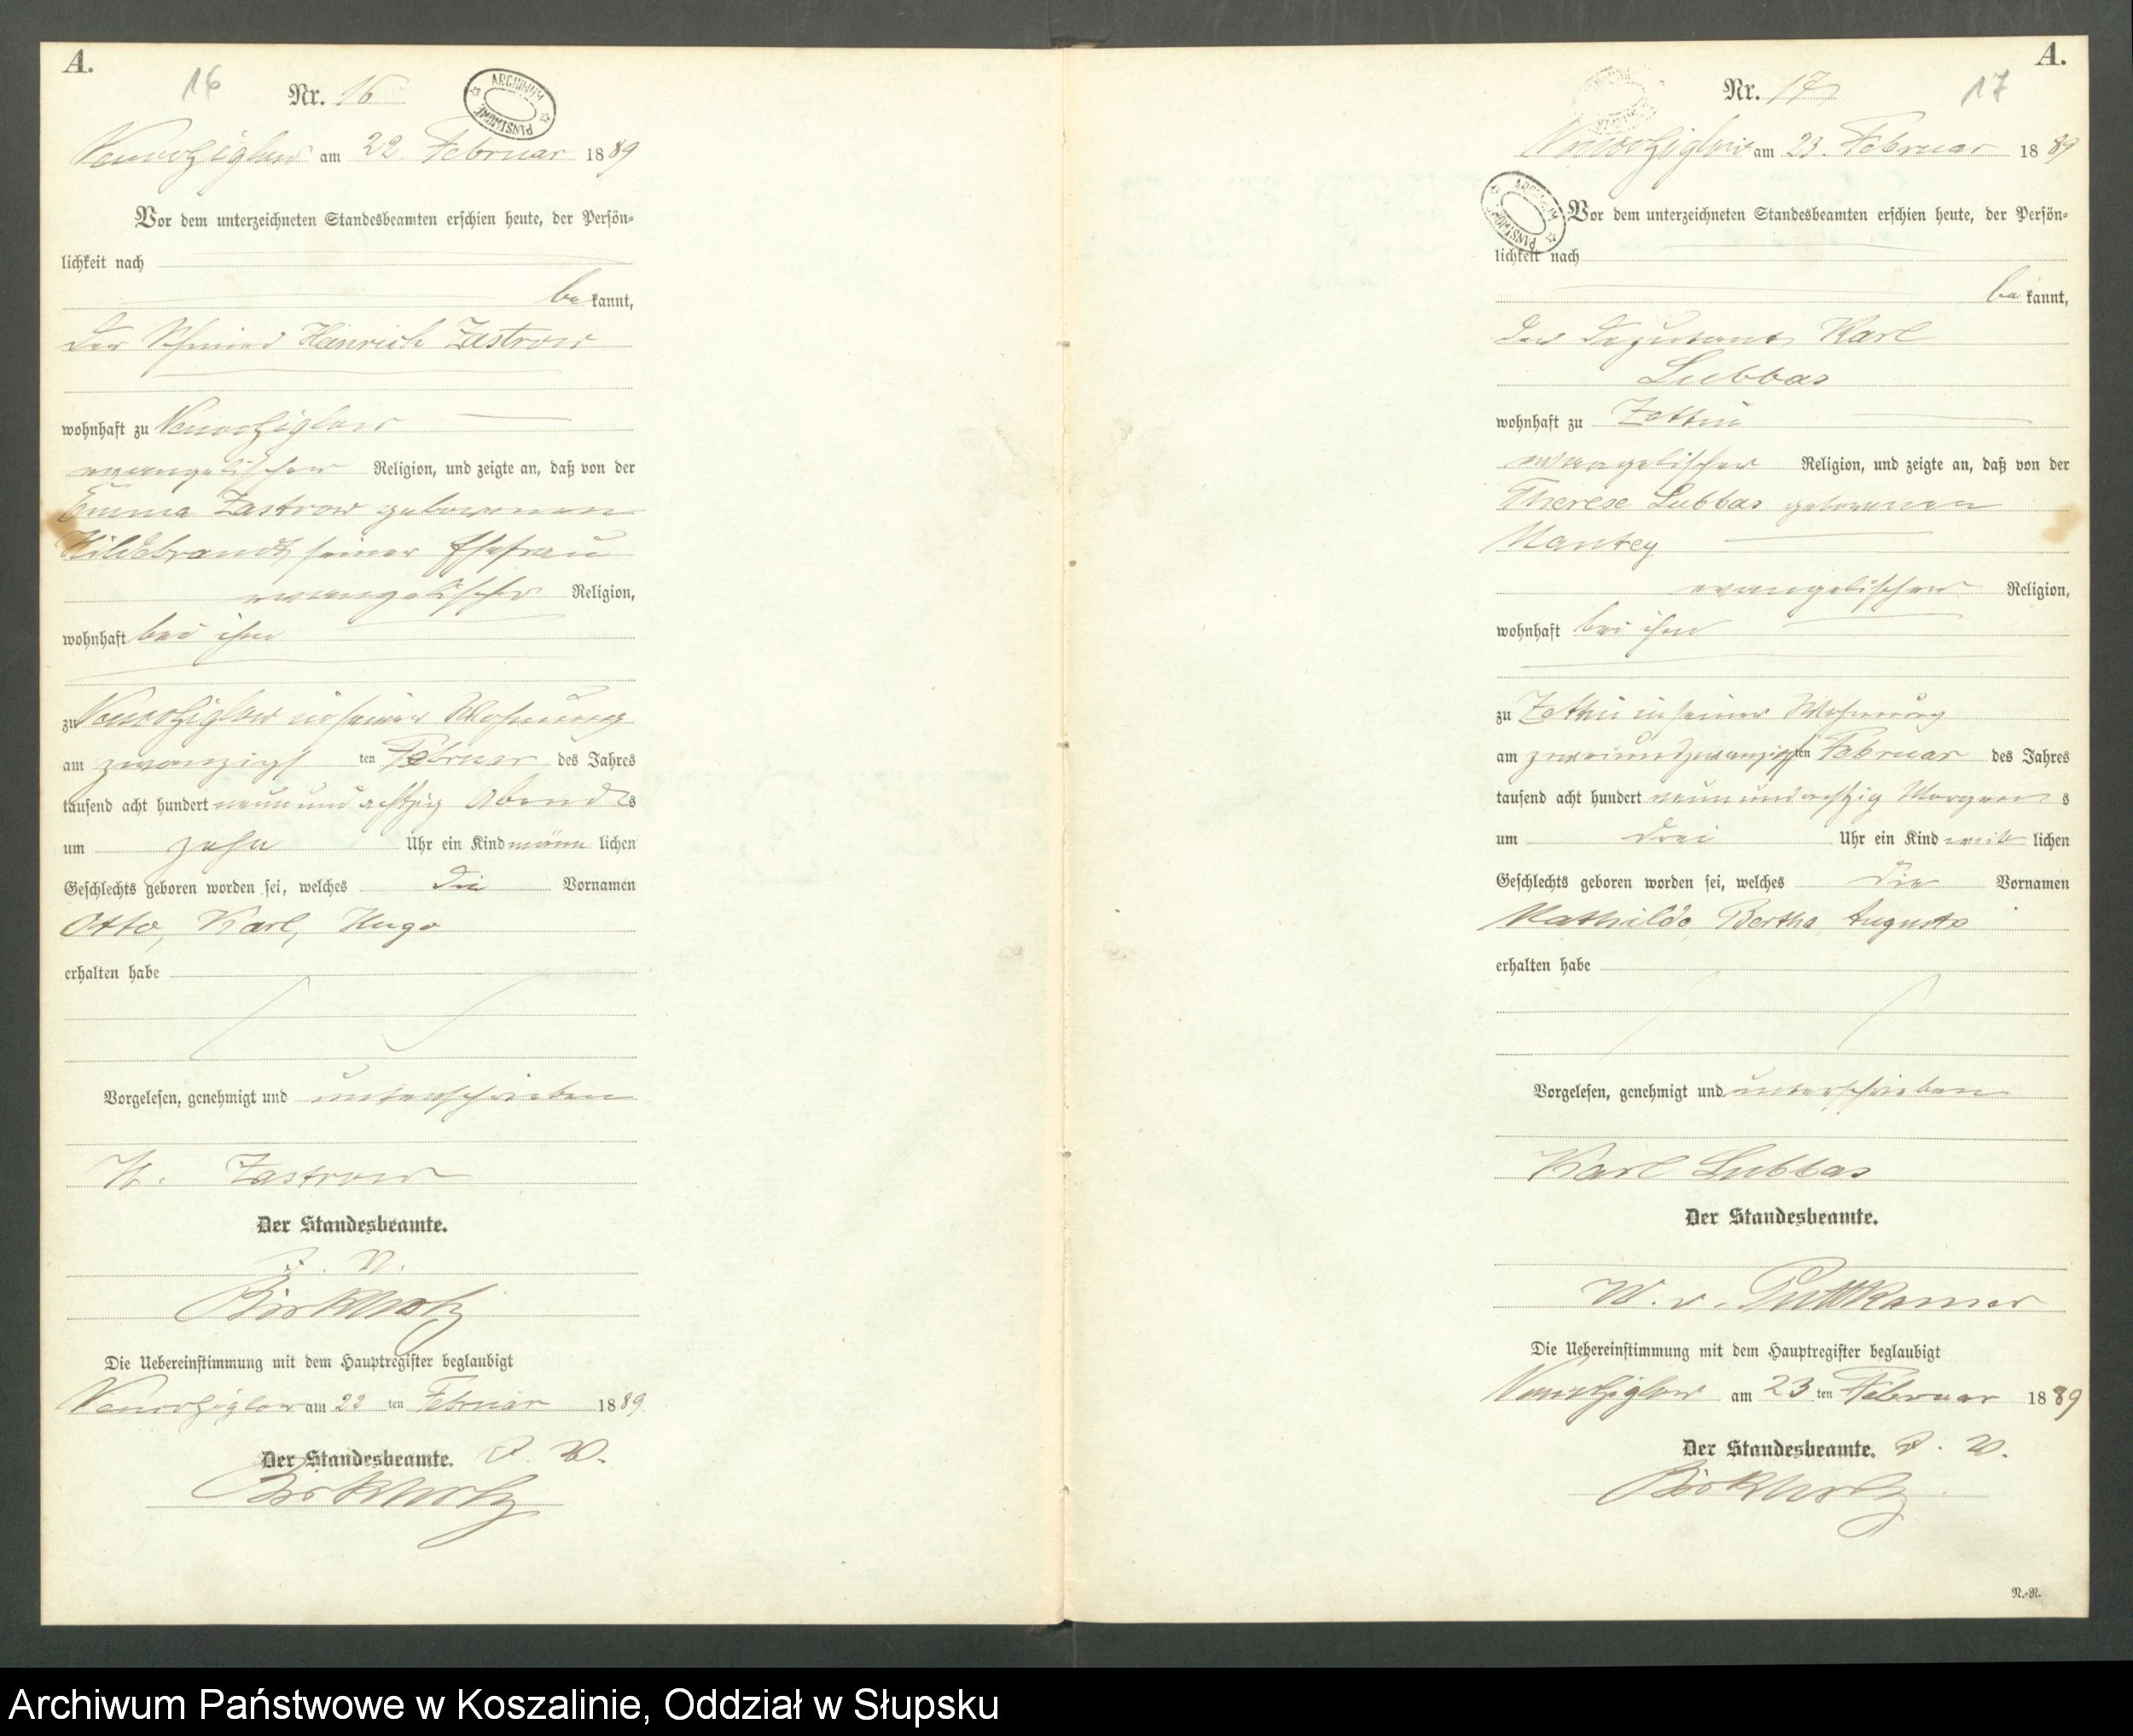 A.
16
Nr. 16
ARCHIWUM PAŃSTWOWE
Neuwolziglow am 22. Februar 1889
Vor dem unterzeichneten Standesbeamten erschien heute, der Persön-
lichkeit nach
bekannt,
der Heinrich Zastrow
wohnhaft zu Neuwolziglow
evangelischer Religion, und zeigte an, daß von der
Emma Zastrow geborenen
Hildebrandt seiner Ehefrau
evangelischer Religion,
wohnhaft bei ihm
zu Neuwolziglow in seiner Wohnung
am zwanzigsten Februar des Jahres
tausend acht hundert neun und achtzig Abends
um zehn Uhr ein Kind männlichen
Geschlechts geboren worden sei, welches die Vornamen
Otto, Karl, Hugo
erhalten habe
Vorgelesen, genehmigt und unterschrieben
H. Zastrow
Der Standesbeamte.
J. V.
Birkholz
Die Uebereinstimmung mit dem Hauptregister beglaubigt
Neuwolziglow am 22 ten Februar 1889
Der Standesbeamte. J. V.
Birkholz
A.
17
Nr. 17
Neuwolziglow am 23. Februar 1889
ARCHIWUM PAŃSTWOWE
Vor dem unterzeichneten Standesbeamten erschien heute, der Persön-
lichkeit nach
bekannt,
der Deputant Karl
Lubbas
wohnhaft zu Zettin
evangelischer Religion, und zeigte an, daß von der
Therese Lubbas geborenen
Mantey
evangelischer Religion,
wohnhaft bei ihm
zu Zettin in seiner Wohnung
am zweiundzwanzigsten Februar des Jahres
tausend acht hundert neun und achtzig Morgens
um drei Uhr ein Kind weiblichen
Geschlechts geboren worden sei, welches die Vornamen
Mathilde, Bertha, Auguste
erhalten habe
Vorgelesen, genehmigt und unterschrieben
Karl Lubbas
Der Standesbeamte.
W. v. Puttkamer
Die Uebereinstimmung mit dem Hauptregister beglaubigt
Neuwolziglow am 23 ten Februar 1889
Der Standesbeamte. J. V.
Birkholz
N.-R.
Archiwum Państwowe w Koszalinie, Oddział w Słupsku